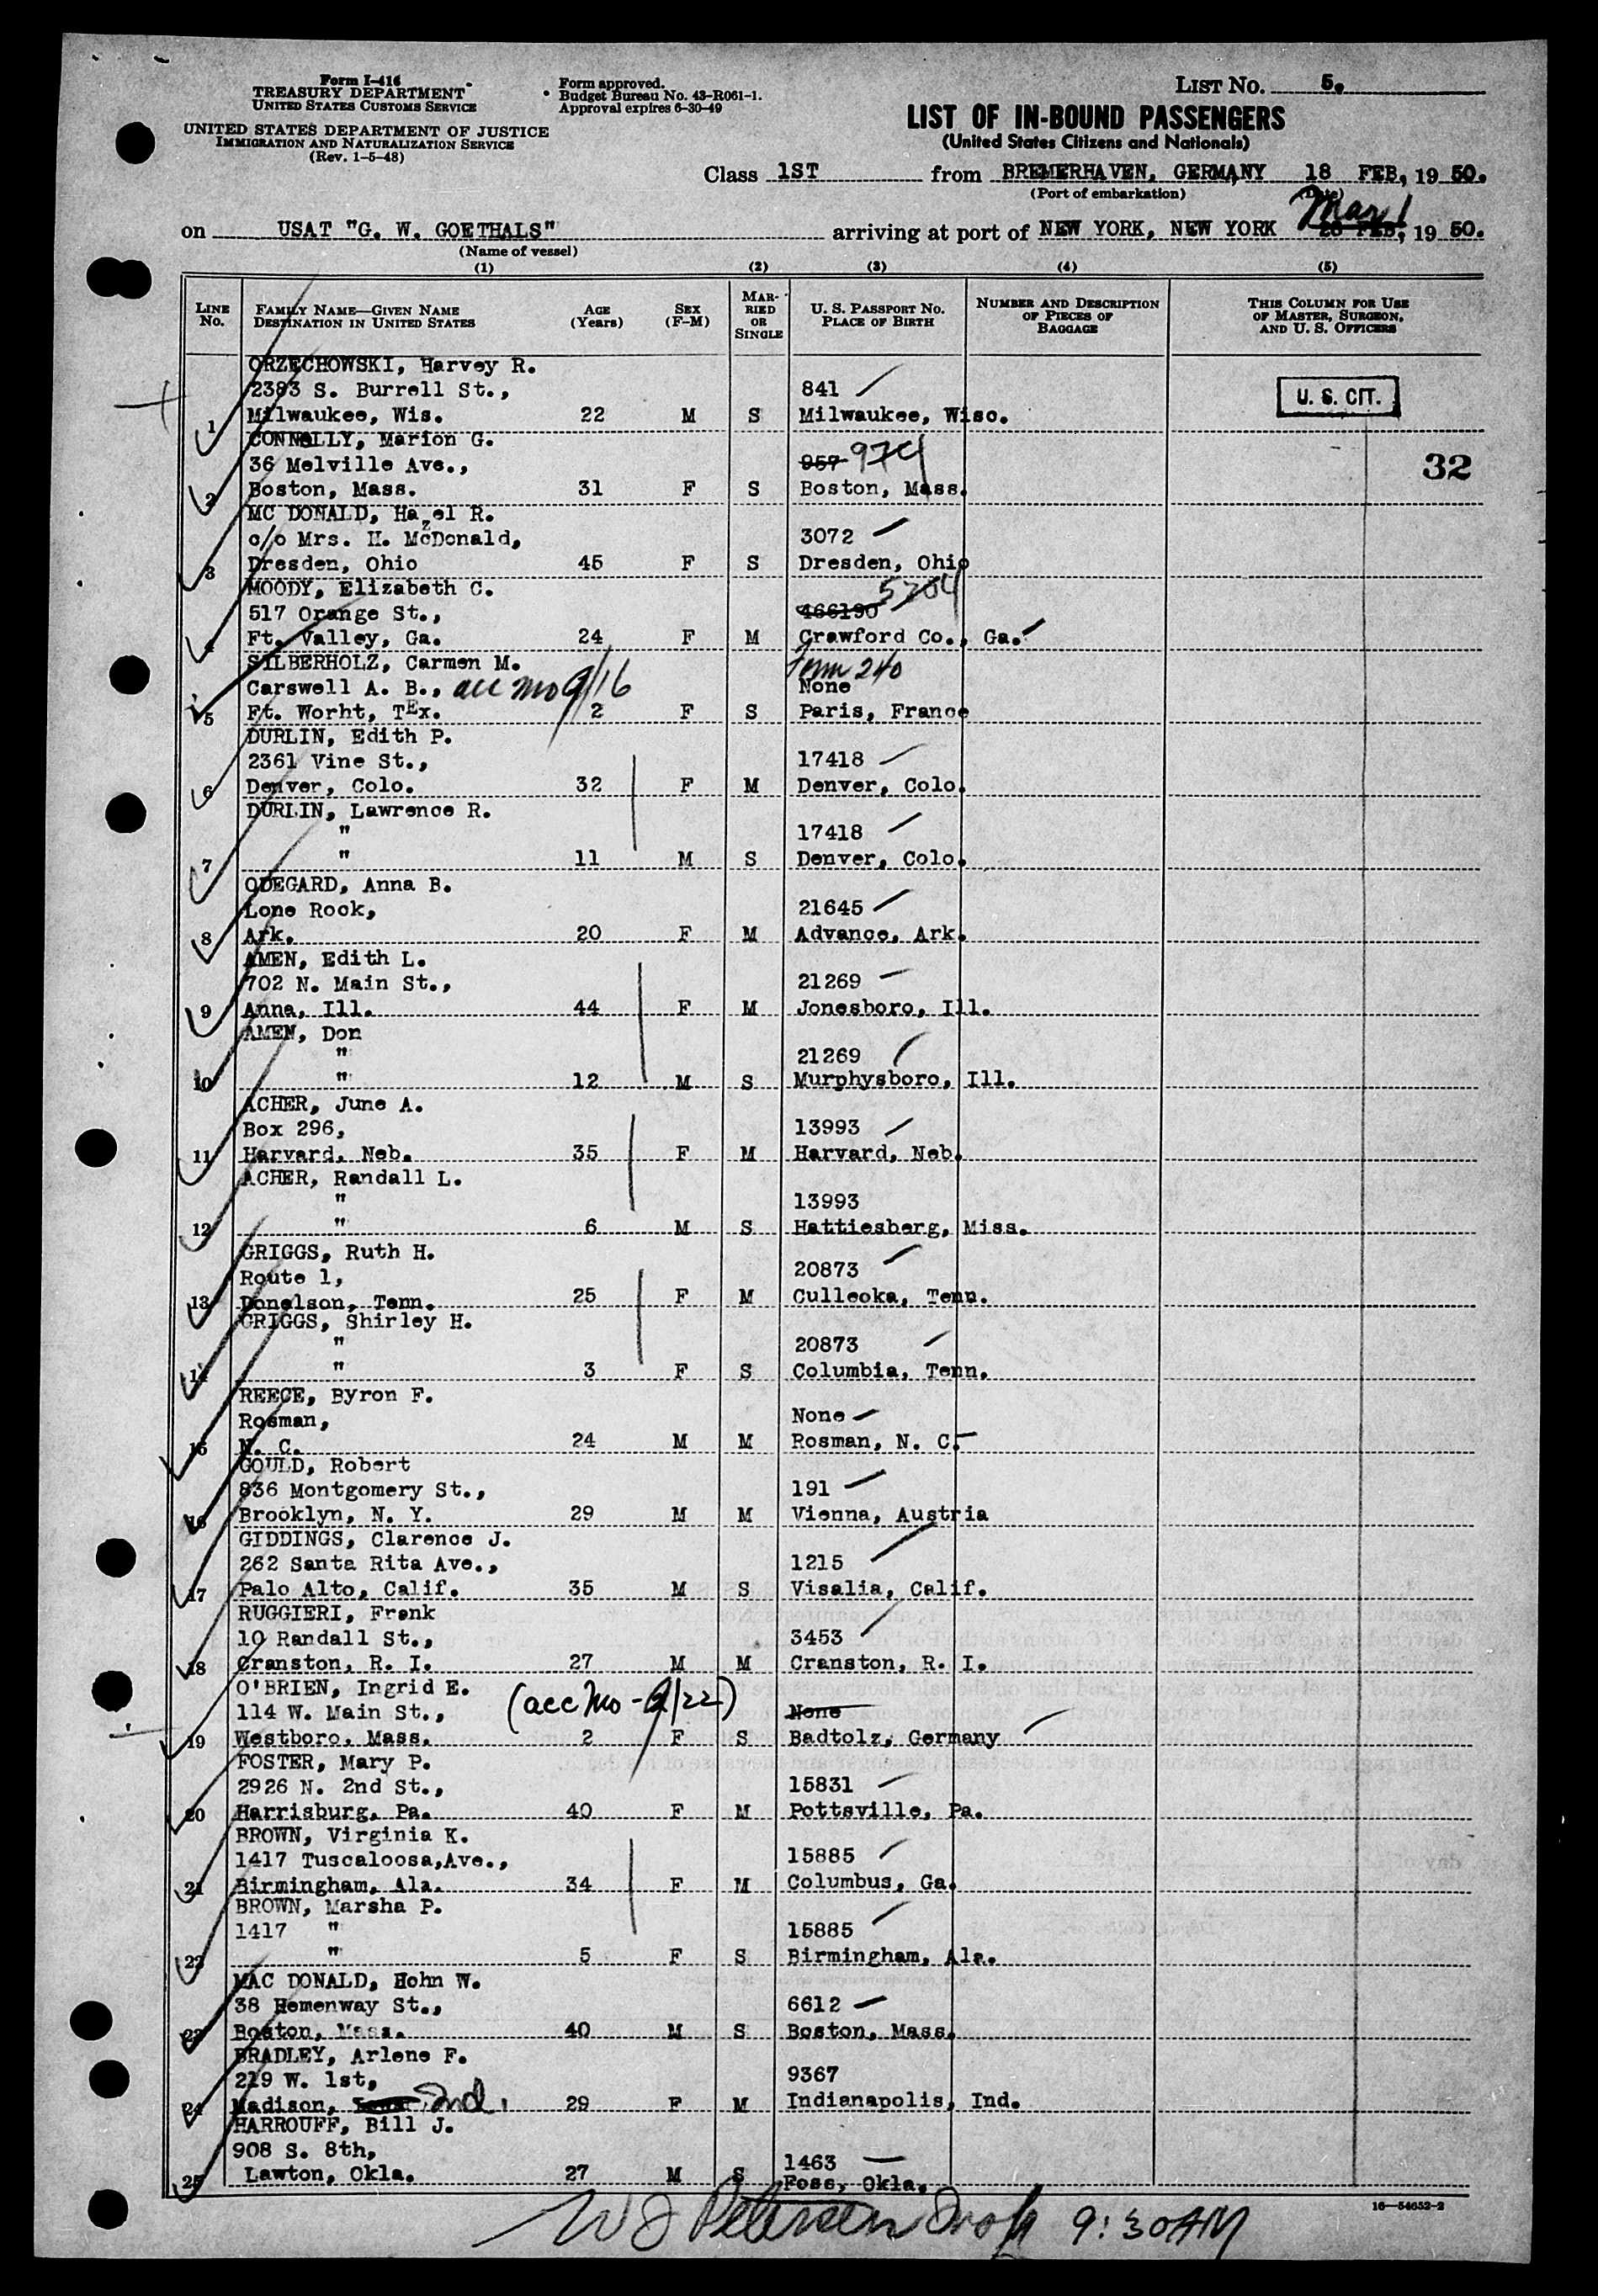 Form I-416
TREASURY DEPARTMENT
UNITED STATES CUSTOMS SERVICE
UNITED STATES DEPARTMENT OF JUSTICE
IMMIGRATION AND NATURALIZATION SERVICE
(Rev. 1-5-48)
Form approved.
Budget Bureau No. 43-R061-1.
Approval expires 6-30-49
LIST NO. 5.
LIST OF IN-BOUND PASSENGERS
(United States Citizens and Nationals)
Class 1ST from BREMERHAVEN, GERMANY 18 FEB, 19 50.
(Port of embarkation) (Date)
Mar 1
on USAT "G. W. GOETHALS" arriving at port of NEW YORK, NEW YORK 28 FEB, 19 50.
(Name of vessel)
(1) (2) (3) (4) (5)
LINE No. FAMILY NAME—GIVEN NAME DESTINATION IN UNITED STATES AGE (Years) SEX (F-M) MARRIED OR SINGLE U. S. PASSPORT NO. PLACE OF BIRTH NUMBER AND DESCRIPTION OF PIECES OF BAGGAGE THIS COLUMN FOR USE OF MASTER, SURGEON, AND U. S. OFFICERS
ORZECHOWSKI, Harvey R.
2383 S. Burrell St., 841 U. S. CIT.
1 Milwaukee, Wis. 22 M S Milwaukee, Wisc.
CONNOLLY, Marion G.
36 Melville Ave., 957 974 32
2 Boston, Mass. 31 F S Boston, Mass.
MC DONALD, Hazel R.
c/o Mrs. H. McDonald, 3072
3 Dresden, Ohio 45 F S Dresden, Ohio
MOODY, Elizabeth C. 5204
517 Orange St., 466190
4 Ft. Valley, Ga. 24 F M Crawford Co., Ga.
SILBERHOLZ, Carmen M. Form 240
Carswell A. B., acc mo 9/16 None
5 Ft. Worht, TEx. 2 F S Paris, France
DURLIN, Edith P.
2361 Vine St., 17418
6 Denver, Colo. 32 F M Denver, Colo.
DURLIN, Lawrence R.
" 17418
7 " 11 M S Denver, Colo.
ODEGARD, Anna B.
Lone Rock, 21645
8 Ark. 20 F M Advance, Ark.
AMEN, Edith L.
702 N. Main St., 21269
9 Anna, Ill. 44 F M Jonesboro, Ill.
AMEN, Don
" 21269
10 " 12 M S Murphysboro, Ill.
ACHER, June A.
Box 296, 13993
11 Harvard, Neb. 35 F M Harvard, Neb.
ACHER, Randall L.
" 13993
12 " 6 M S Hattiesberg, Miss.
GRIGGS, Ruth H.
Route 1, 20873
13 Donelson, Tenn. 25 F M Culleoka, Tenn.
GRIGGS, Shirley H.
" 20873
14 " 3 F S Columbia, Tenn.
REECE, Byron F.
Rosman, None
15 N. C. 24 M M Rosman, N. C.
GOULD, Robert
836 Montgomery St., 191
16 Brooklyn, N. Y. 29 M M Vienna, Austria
GIDDINGS, Clarence J.
262 Santa Rita Ave., 1215
17 Palo Alto, Calif. 35 M S Visalia, Calif.
RUGGIERI, Frank
10 Randall St., 3453
18 Cranston, R. I. 27 M M Cranston, R. I.
O'BRIEN, Ingrid E.
114 W. Main St., (acc mo - 9/22) None
19 Westboro, Mass. 2 F S Badtolz, Germany
FOSTER, Mary P.
2926 N. 2nd St., 15831
20 Harrisburg, Pa. 40 F M Pottsville, Pa.
BROWN, Virginia K.
1417 Tuscaloosa,Ave., 15885
21 Birmingham, Ala. 34 F M Columbus, Ga.
BROWN, Marsha P.
1417 " 15885
22 " 5 F S Birmingham, Ala.
MAC DONALD, Hohn W.
38 Hemenway St., 6612
23 Boston, Mass. 40 M S Boston, Mass.
BRADLEY, Arlene F.
219 W. 1st, 9367
24 Madison, Ind. 29 F M Indianapolis, Ind.
HARROUFF, Bill J.
908 S. 8th, 1463
25 Lawton, Okla. 27 M S Foss, Okla.
16—54652-2
W J Petersen 9:30 AM